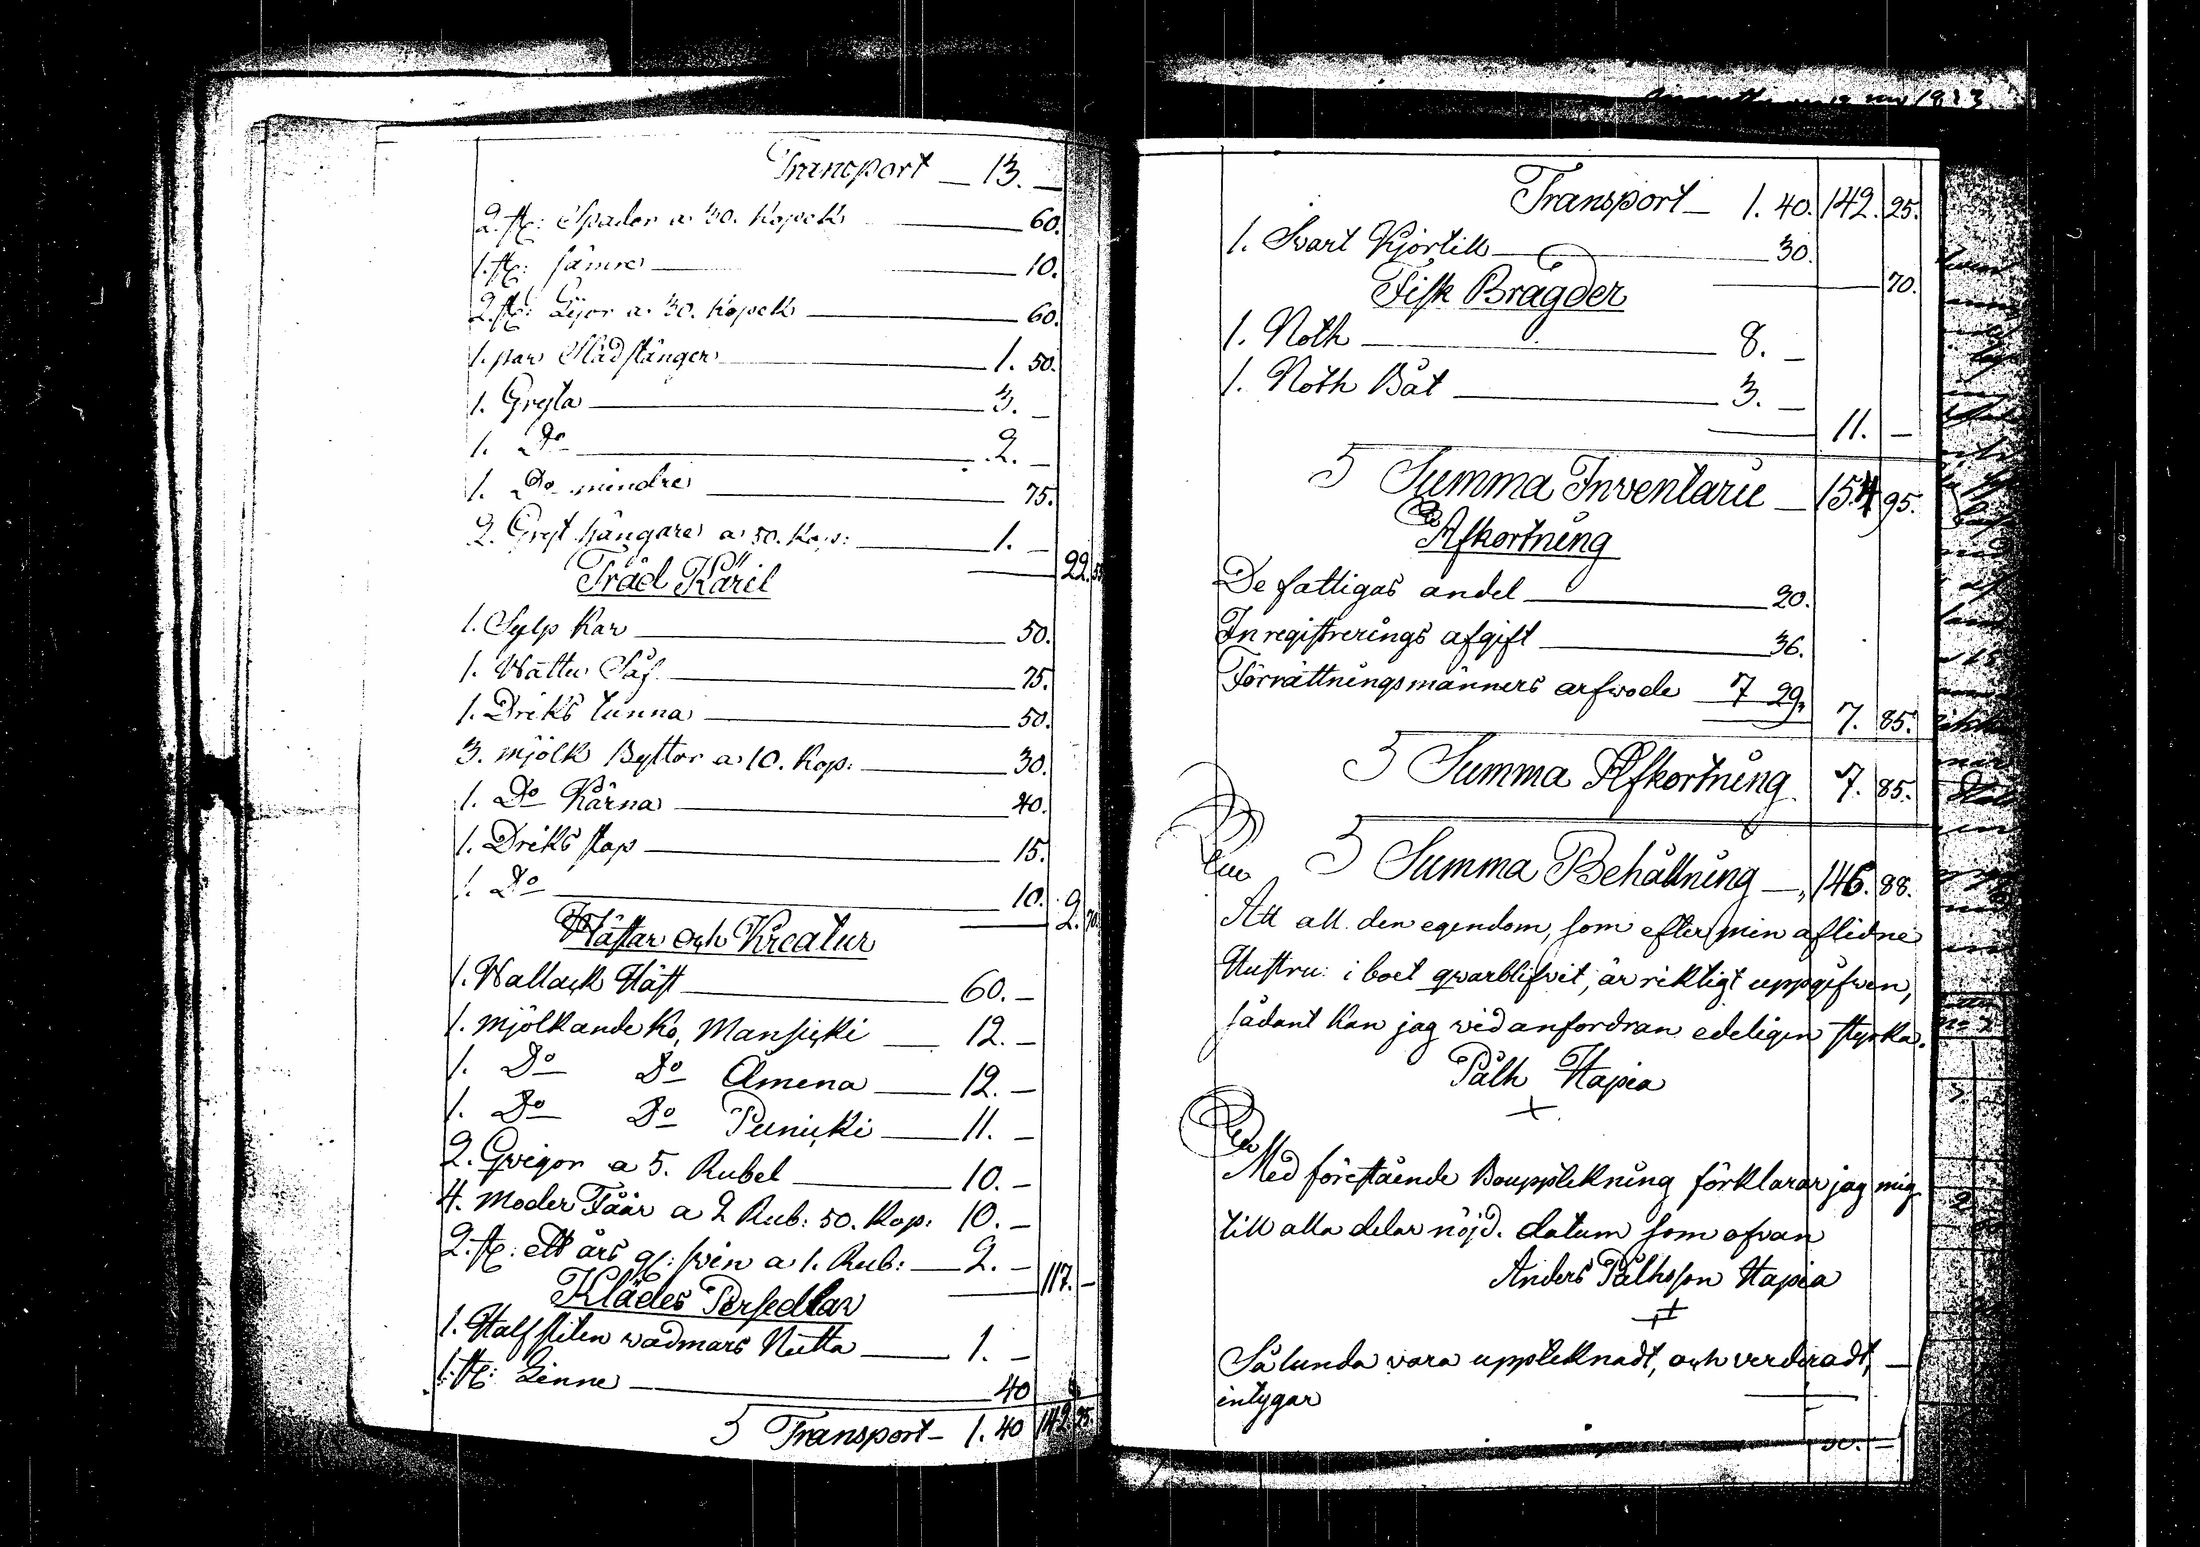 Transport _ 13. _
2. st: Spader a 30. Kopek 60.
1. st: 10.
2. st: Lijor a 30. Kopek 60.
1. par Slädstänger 1. 50.
1. Gryta 3. _
1. Do 2. _
1. Do mindre 75.
2. Gryt hängare a 50. Kop: 1. _
22. 55
Träd Käril
1. Sylp Kar 50.
1. Wattu Så 75.
1. Driks tunna 50.
3. mjölk Byttor a 10. Kop: 30.
1. Do Kärna 40.
1. Driks stop 15.
1. Do 10.
2. 70.
Hästar och Kreatur
1. Wallack Häst 60. _
1. mjölkande Ko, Mansicki 12. _
1. Do Do Ämena 12. _
1. Do Do Punicki 11. _
2. Qvigor a 5. Rubel 10. _
4. Moder Fåår a 2 Rub: 50. Kop: 10. _
2. st: ett års gl: svin a 1. Rub: 2. _
117. _
Klädes Persedlar
1. Half sliten wadmars Nutta 1. _
1. st: Linne 40
Transport _ 1. 40 142. 25.
Transport _ 1. 40. 142. 25.
1. Svart Kjortill 30.
70.
Fisk Bragder
1. Noth 8. _
1. Noth Båt 3. _
11. _
Summa Inventarii _ 154 95.
Afkortning
De fattigas andel 20.
Inregistrerings afgift 36.
Förrättningsmänners arfwode 7 29.
7. 85.
Summa Afkortning 7. 85.
Summa Behållning _ 146. 88.
Att all den egendom, som efter min aflidne
Hustru: i boet qvarblifvit, är riktigt uppgifwen,
sådant kan jag vid anfordran edeligen styrka.
Pålh Hapea
Med förestående Bouppteknung förklarar jag mig
till alla delar nöjd. datum som ofvan
Anders Pålhsson Hapea
Sålunda vara uppteknadt, och verderadt,
intygar